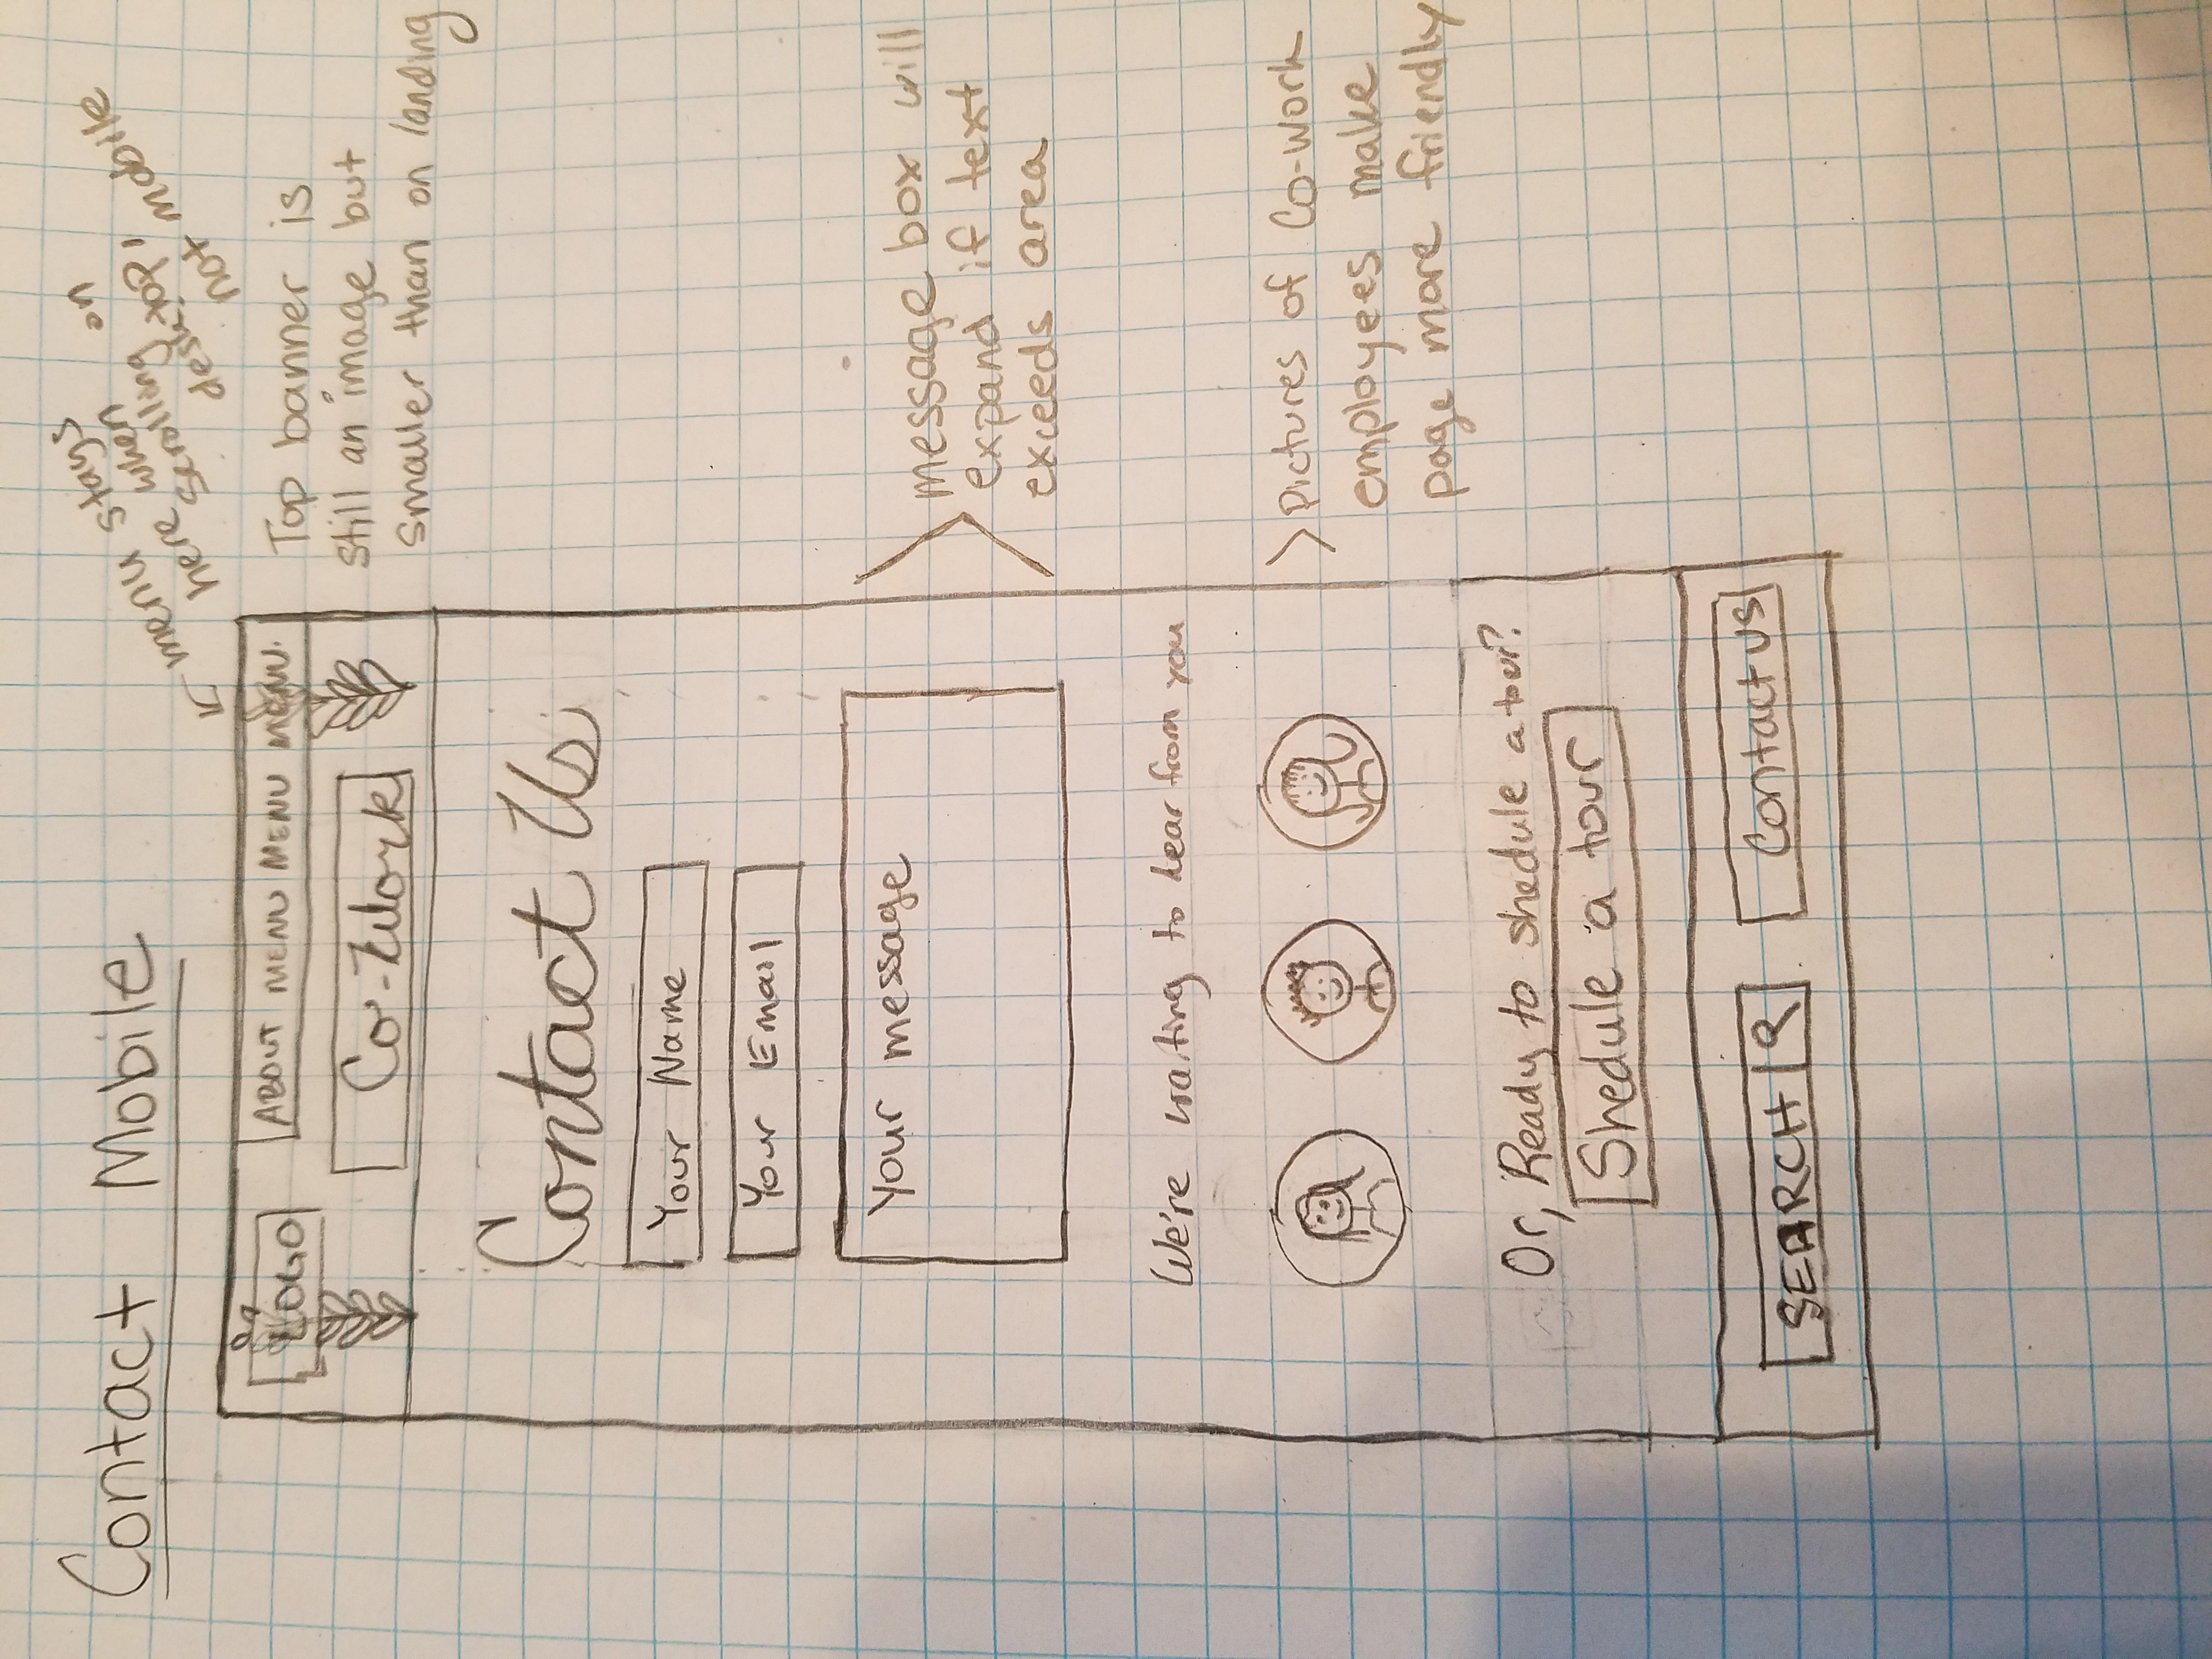 Contact Mobile
menu stays
here when
scrolling on
desktop,
not mobile
LOGO
ABOUT MENU MENU MENU.
Co-Work
Top banner is
still an image but
smaller than on landing
Contact Us
Your Name
Your Email
Your message
message box will
expand if text
exceeds area
We're waiting to hear from you
Pictures of Co-work
employees make
page more friendly
Or, Ready to shedule a tour?
Shedule a tour
SEARCH
Contact us